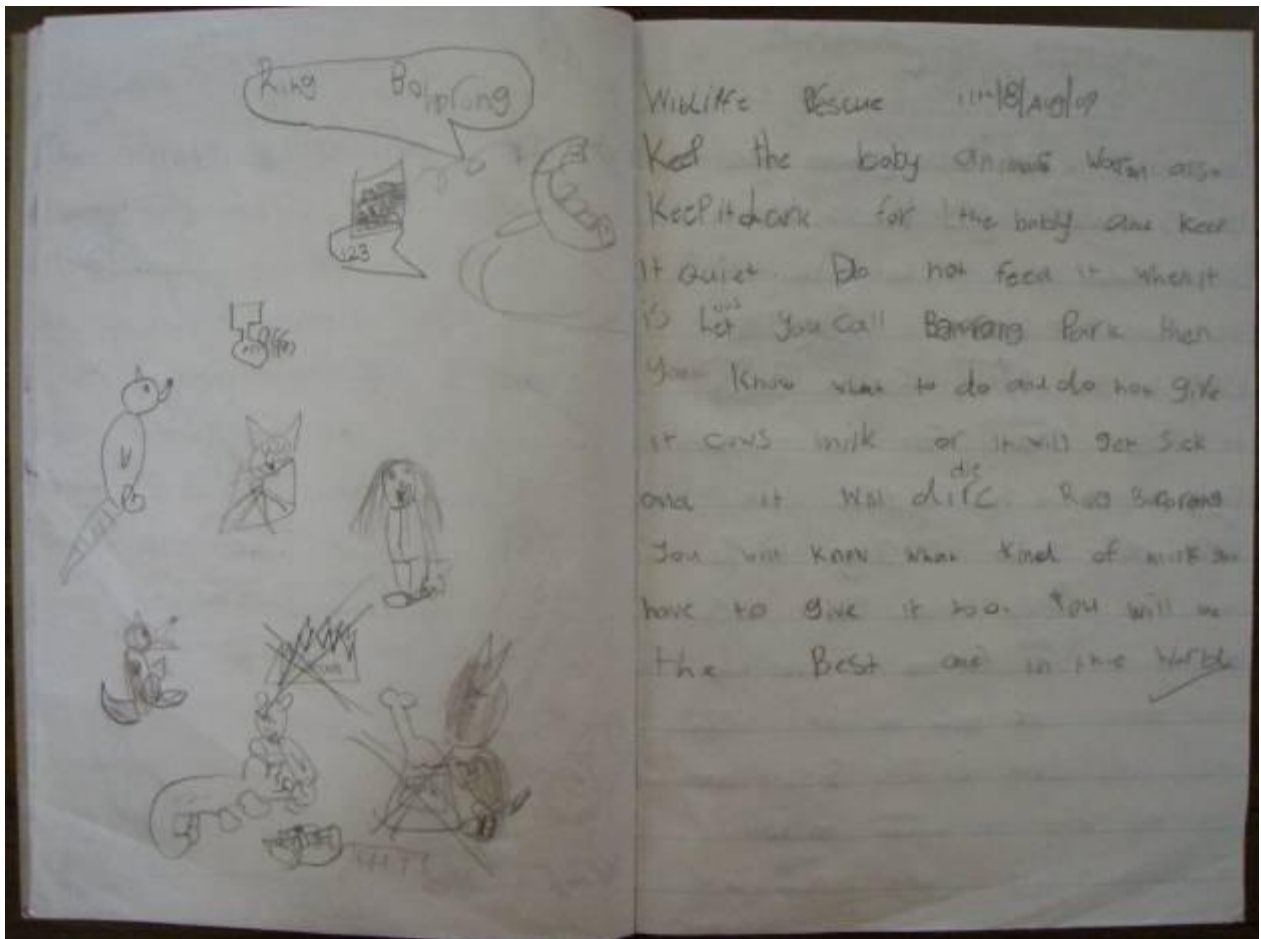 Ring Bonorong
123
Off
Wildliffe Rescue 18/Aug/09
Keep the baby animals warm also
Keep it dark for the baby and keep
it quiet. Do not feed it when it
is Let you call Park then
you know what to do and do not give
it cows milk or it will get sick
and it will die
You will know what kind of milk you
have to give it too. You will be
the Best one in the World